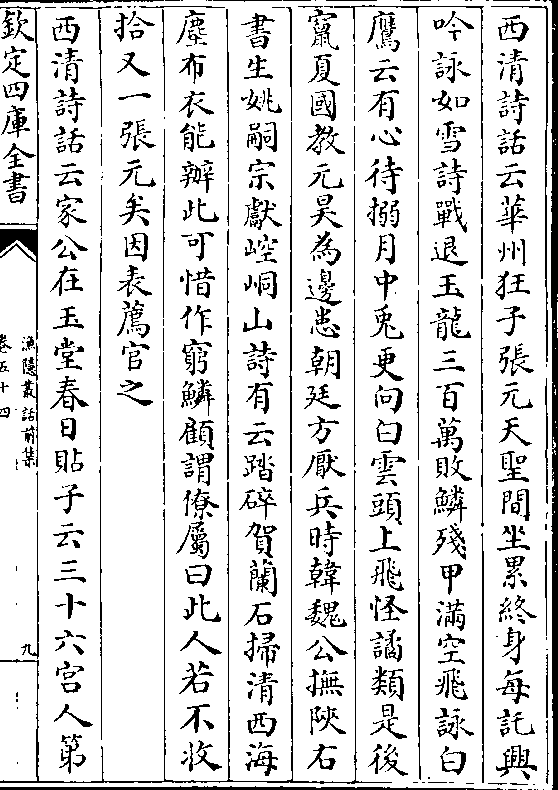 西清詩話云華州狂子張元天聖間坐累終身每託興
吟詠如雪詩戰退玉龍三百萬敗鱗殘甲滿空飛詠白
鷹云有心待搦月中兎更向白雲頭上飛怪譎類是後
竄夏國教元昊為邊患朝廷方厭兵時韓魏公撫陜右
書生姚嗣宗獻崆峒山詩有云踏碎賀蘭石掃清西海
塵布衣能辦此可惜作窮鱗顧謂僚屬曰此人若不收
拾又一張元矣因表薦官之
西清詩話云家公在玉堂春日貼子云三十六宫人第
欽定四庫全書
漁隱叢話前集
卷五十四
九